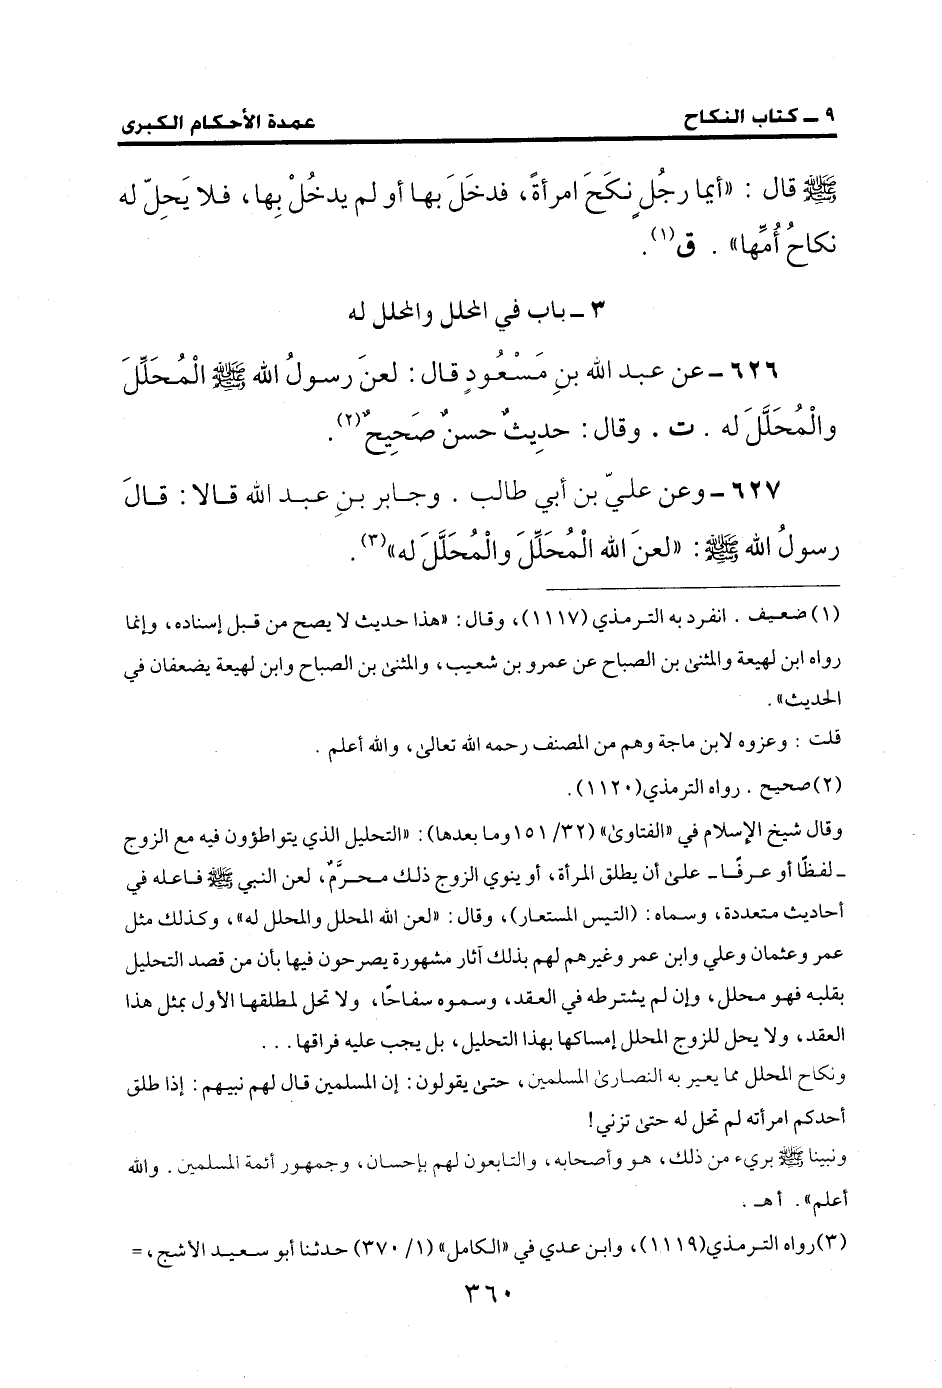 ٩ ـ كتاب النكاح
عمدة الأحكام الكبرى
ﷺ قال : «أيما رجُلٍ نكَحَ امرأةً، فدخَلَ بها أو لم يدخُلْ بِها، فلا يَحِلّ له
نكاحُ أُمِّها» . ق(١).
٣ ـ باب في المحلل والمحلل له
٦٢٦ ـ عن عبد الله بنِ مَسْعُودٍ قال : لعنَ رسولُ الله ﷺ الْمُحَلِّلَ
والْمُحَلَّلَ له . ت . وقال : حديثٌ حسنٌ صَحِيحٌ(٢).
٦٢٧ ـ وعن عليّ بن أبي طالب . وجابر بنِ عبد الله قالا : قالَ
رسولُ الله ﷺ : «لعنَ الله الْمُحَلِّلَ والْمُحَلَّلَ له»(٣).
(١) ضعيف . انفرد به الترمذي (١١١٧)، وقال : «هذا حديث لا يصح من قبل إسناده، وإنما
رواه ابن لهيعة والمثنى بن الصباح عن عمرو بن شعيب، والمثنى بن الصباح وابن لهيعة يضعفان في
الحديث» .
قلت : وعزوه لابن ماجة وهم من المصنف رحمه الله تعالى، والله أعلم .
(٢) صحيح . رواه الترمذي (١١٢٠).
وقال شيخ الإسلام في «الفتاوى» (٣٢/ ١٥١ وما بعدها): «التحليل الذي يتواطؤون فيه مع الزوج
ـ لفظًا أو عرفًا ـ على أن يطلق المرأة، أو ينوي الزوج ذلك محرَّمٌ، لعن النبي ﷺ فاعله في
أحاديث متعددة، وسماه : (التيس المستعار)، وقال : «لعن الله المحلل والمحلل له»، وكذلك مثل
عمر وعثمان وعلي وابن عمر وغيرهم لهم بذلك آثار مشهورة يصرحون فيها بأن من قصد التحليل
بقلبه فهو محلل، وإن لم يشترطه في العقد، وسموه سفاحًا، ولا تحل لمطلقها الأول بمثل هذا
العقد، ولا يحل للزوج المحلل إمساكها بهذا التحليل، بل يجب عليه فراقها . . .
ونكاح المحلل مما يعير به النصارى المسلمين، حتى يقولون : إن المسلمين قال لهم نبيهم : إذا طلق
أحدكم امرأته لم تحل له حتى تزني!
ونبينا ﷺ بريء من ذلك، هو وأصحابه، والتابعون لهم بإحسان، وجمهور أئمة المسلمين . والله
أعلم» . أهـ .
(٣) رواه الترمذي (١١١٩)، وابن عدي في «الكامل» (١/ ٣٧٠) حدثنا أبو سعيد الأشج، =
٣٦٠